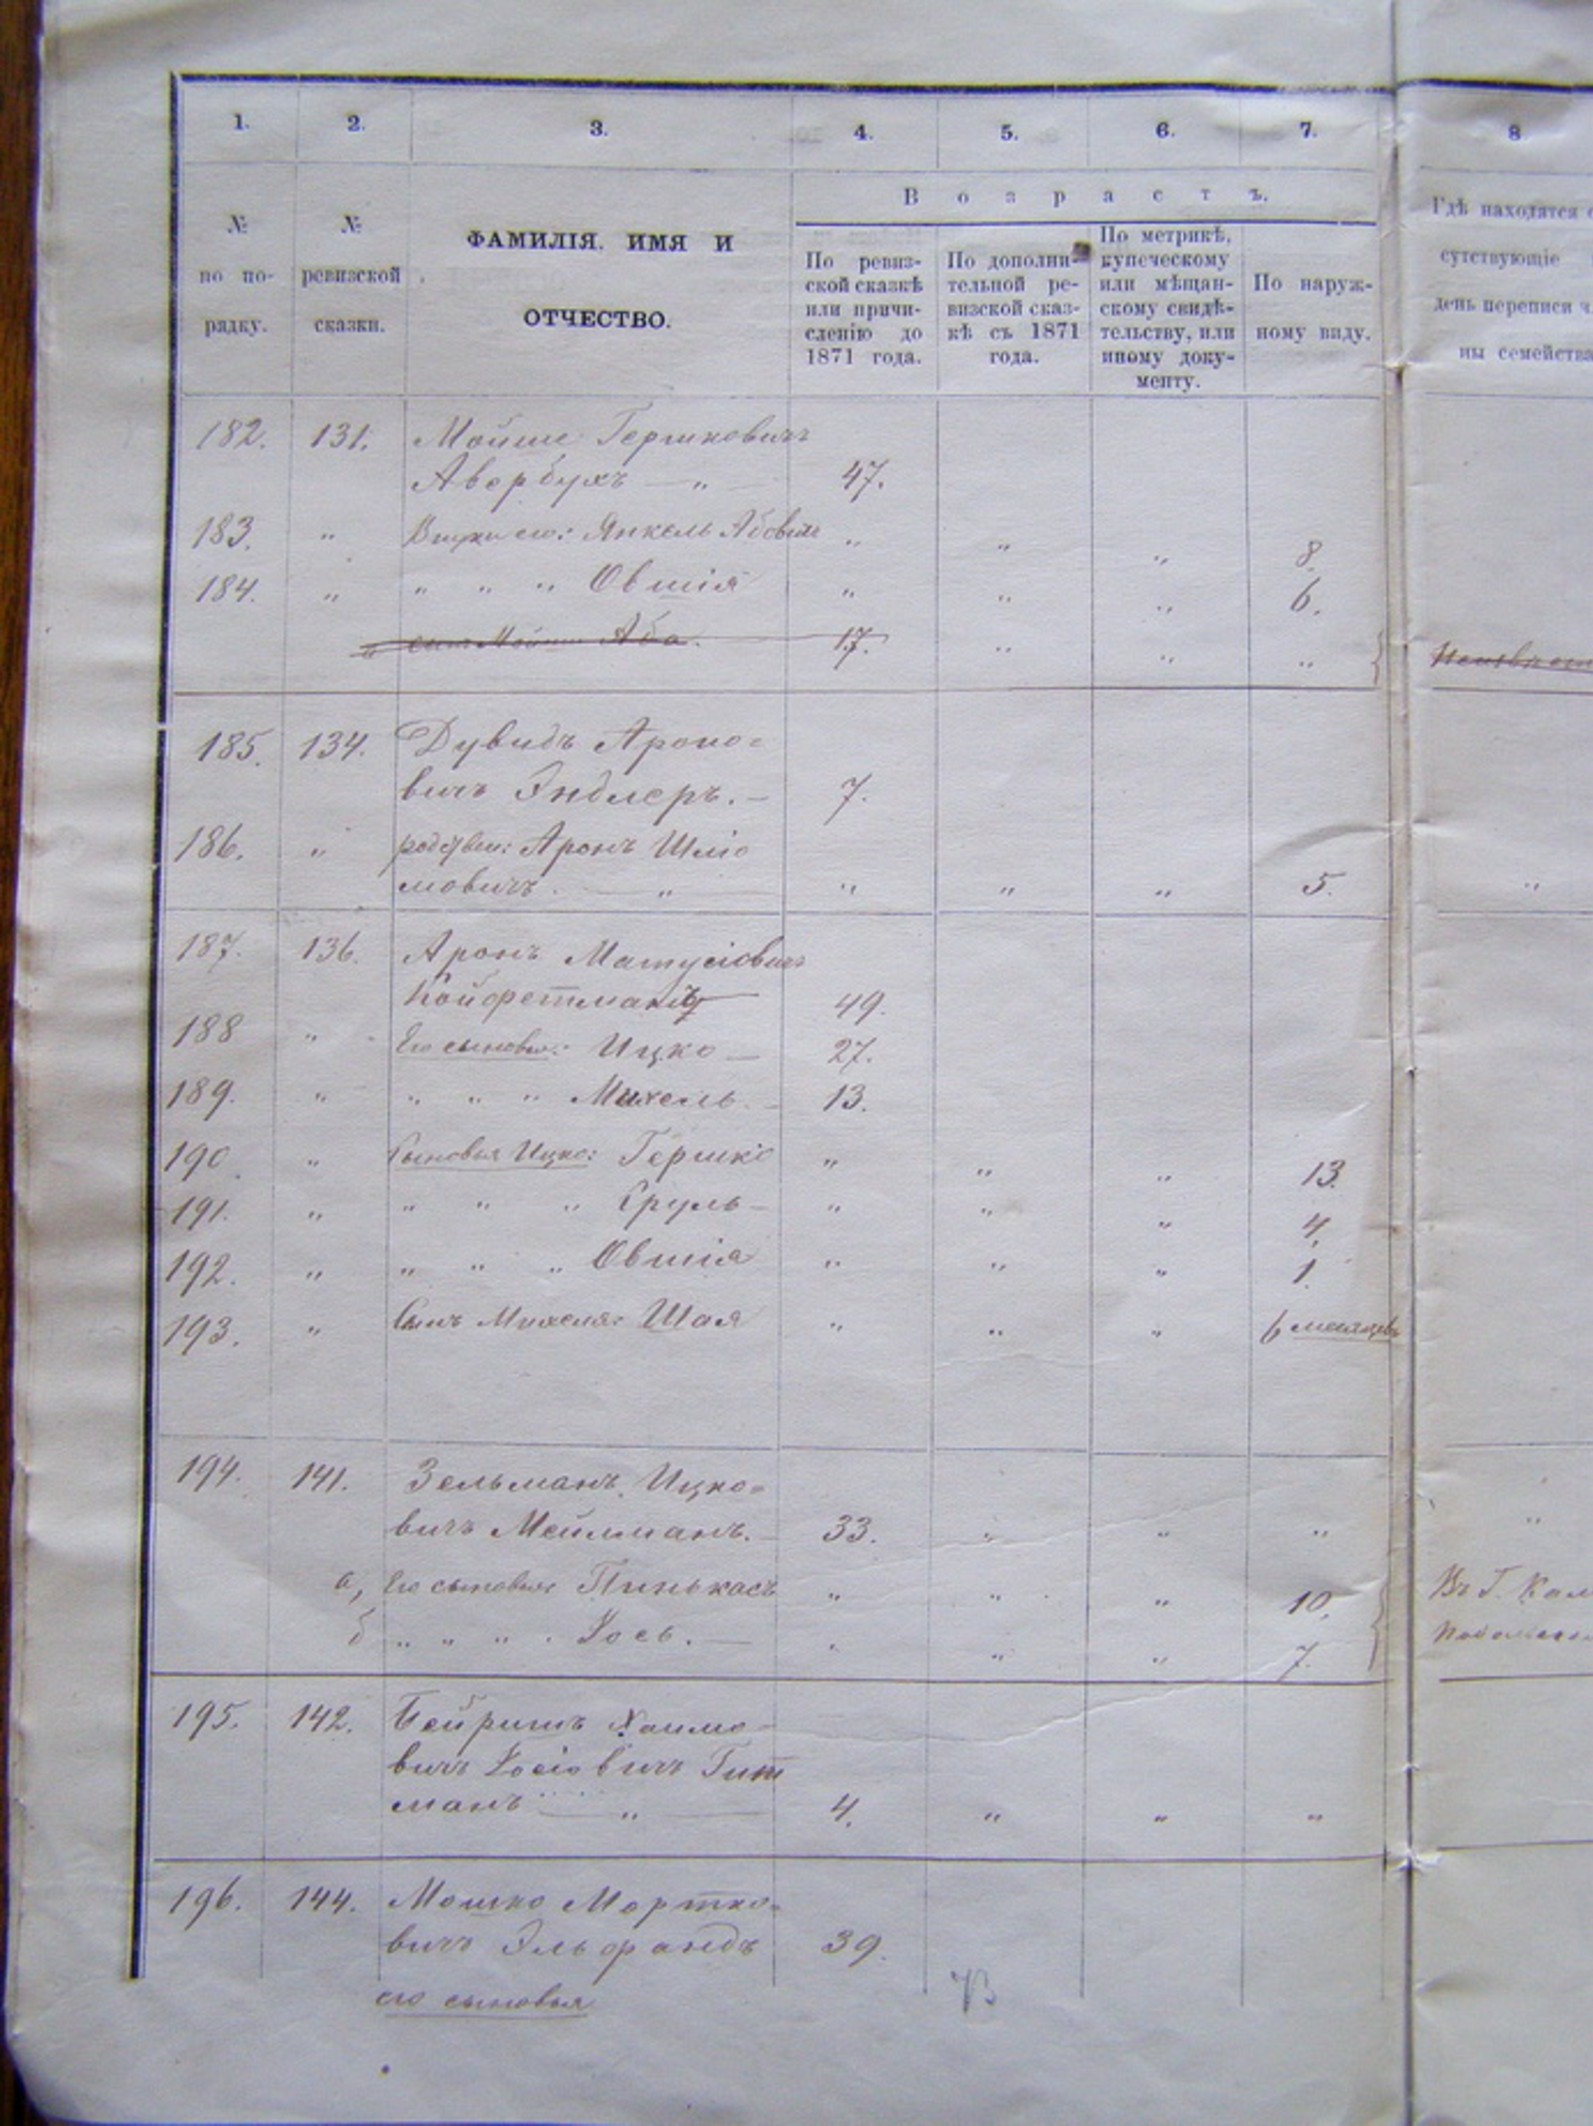 1. 2. 3. 4. 5. 6. 7. 8
№ по по-рядку.
№ ревизской сказки.
ФАМИЛІЯ. ИМЯ И
ОТЧЕСТВО.
Возрастъ.
По ревиз-
ской сказкѣ
или причи-
сленію до
1871 года.
По дополни-
тельной ре-
визской сказ-
кѣ съ 1871
года.
По метрикѣ,
купеческому
или мѣщан-
скому свидѣ-
тельству, или
иному доку-
менту.
По наруж-
ному виду.
Гдѣ находятся
сутствующіе
день переписи
ны семейства
182. 131. Мойше Гершковичъ
Авербухъ — „ — 47.
183. „ Внуки его: Янкель Абовичъ „ „ „ 8.
184. „ „ „ „ Овшія „ „ „ 6.
сынъ Мойши Аба. 17. „ „ „
185. 134. Дувидъ Ароно=
вичъ Эндлеръ. — 7.
186. „ родствен: Аронъ Шлio
мовичъ. — „ — „ „ „ 5. „
187. 136. Аронъ Матусіовичъ
Койфетманъ 49.
188 „ Его сыновья: Ицко — 27.
189. „ „ „ „ Михель. — 13.
190. „ Сыновья Ицко: Гершко „ „ „ 13.
191. „ „ „ „ Сруль — „ „ „ 4.
192. „ „ „ „ Овшія „ „ „ 1.
193. „ Сынъ Михеля: Шая „ „ „ 6 месяцевъ
194. 141. Зельманъ Ицко=
вичъ Мейлманъ. — 33. „ „ „ „
а, Его сыновья: Пинькасъ „ „ „ 10. Въ Г. Кам
б „ „ „ „ Іось. — „ „ „ 7.
195. 142. Бейришъ Хаимо-
вичъ Іосіовичъ Гит
манъ — „ — 4. „ „ „
196. 144. Мошко Мортко=
вичъ Эльфандъ 39.
его сыновья
73